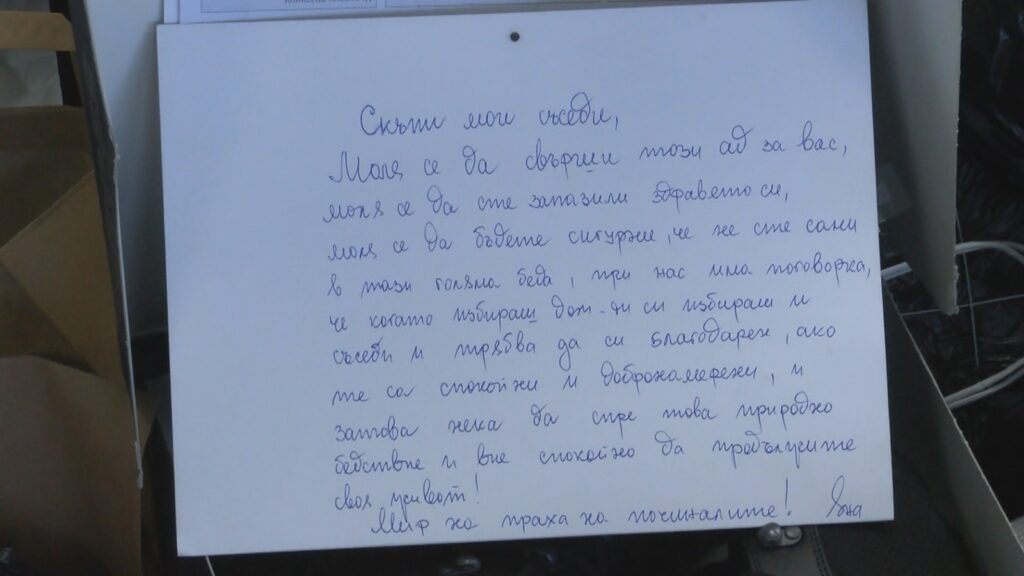 Скъпи мои съседи,
Моля се да свърши този ад за вас,
моля се да сте запазили здравето си,
моля се да бъдете сигурни, че не сте сами
в тази голяма беда, при нас има поговорка,
че когато избираш дом - ти си избираш и
съседи и трябва да си благодарен, ако
те са спокойни и добронамерени, и
затова нека да спре това природно
бедствие и вие спокойно да продължите
своя живот!
Мир на праха на починалите! Яна